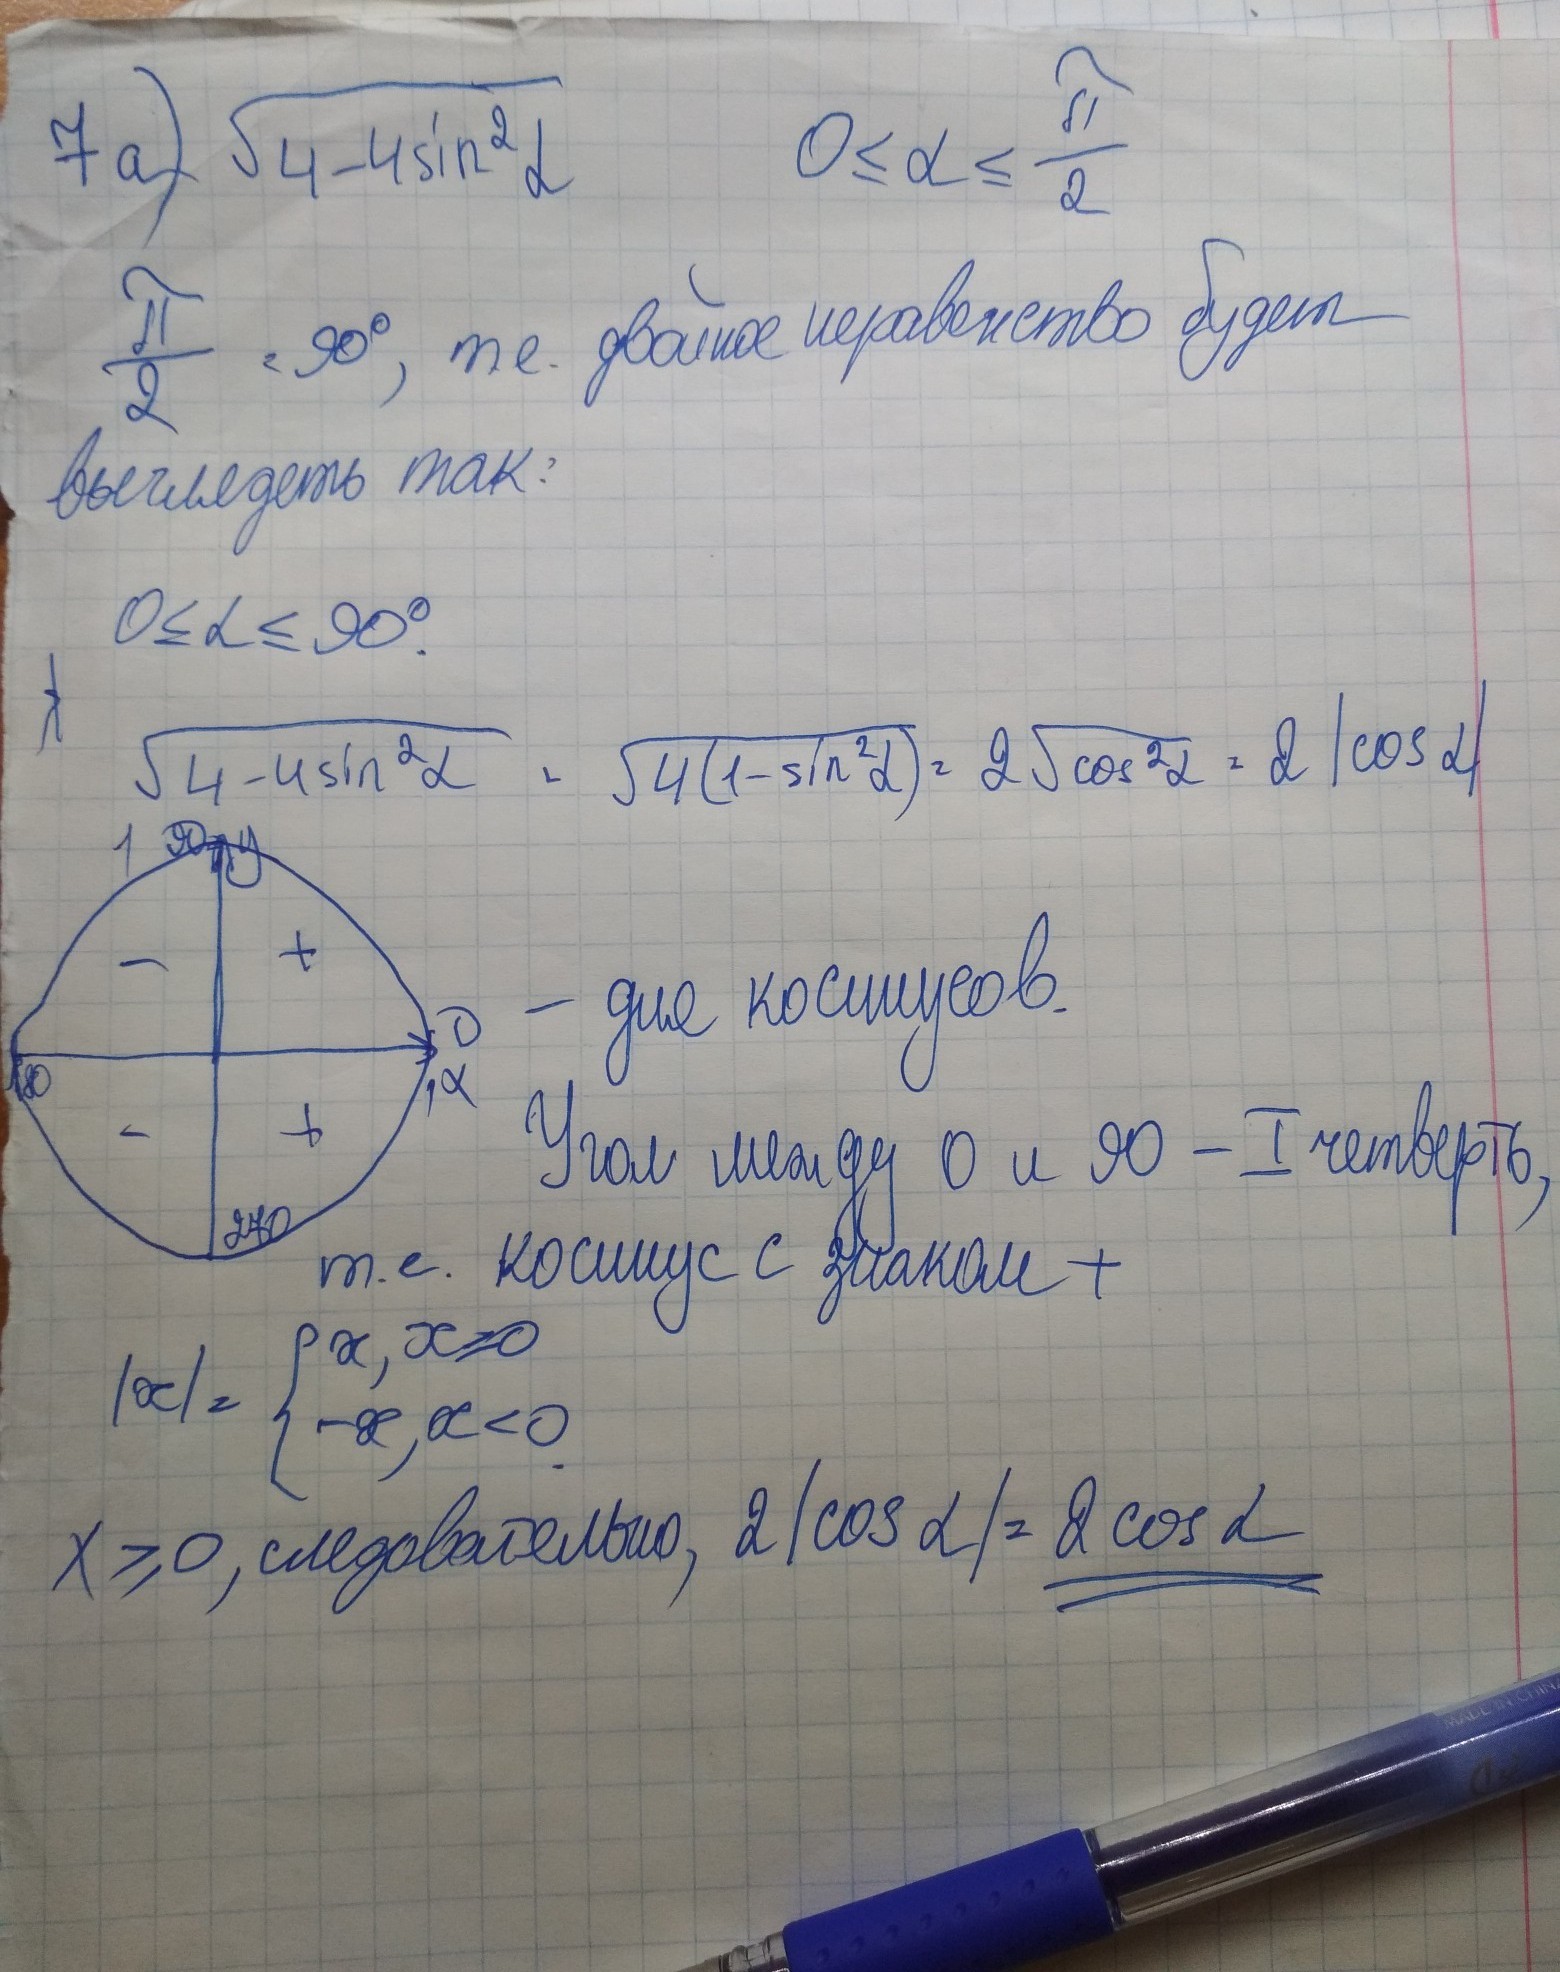 7а) √4-4sin²α 0≤α≤π/2
π/2 = 90°, т.е. двойное неравенство будет
выглядеть так:
0≤α≤90°.
√4-4sin²α = √4(1-sin²α) = 2√cos²α = 2|cosα|
1 90 y
- +
- для косинусов.
0
180 1 x
- +
Угол между 0 и 90 - I четверть,
270
т.е. косинус с знаком +
|x| = { x, x≥0
-x, x<0.
x≥0, следовательно, 2|cosα| = 2cosα
MADE IN CHINA